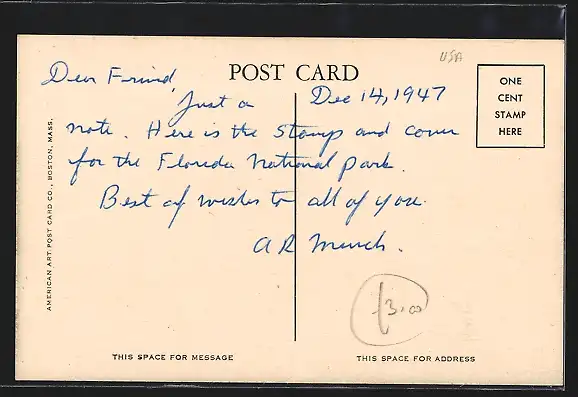 USA
POST CARD
ONE
CENT
STAMP
HERE
Dear Friend, Dec 14, 1947
Just a
note. Here is the stamp and cover
for the Florida National Park.
Best of wishes to all of you.
A R Munch.
£3.00
AMERICAN ART POST CARD CO., BOSTON, MASS.
THIS SPACE FOR MESSAGE
THIS SPACE FOR ADDRESS